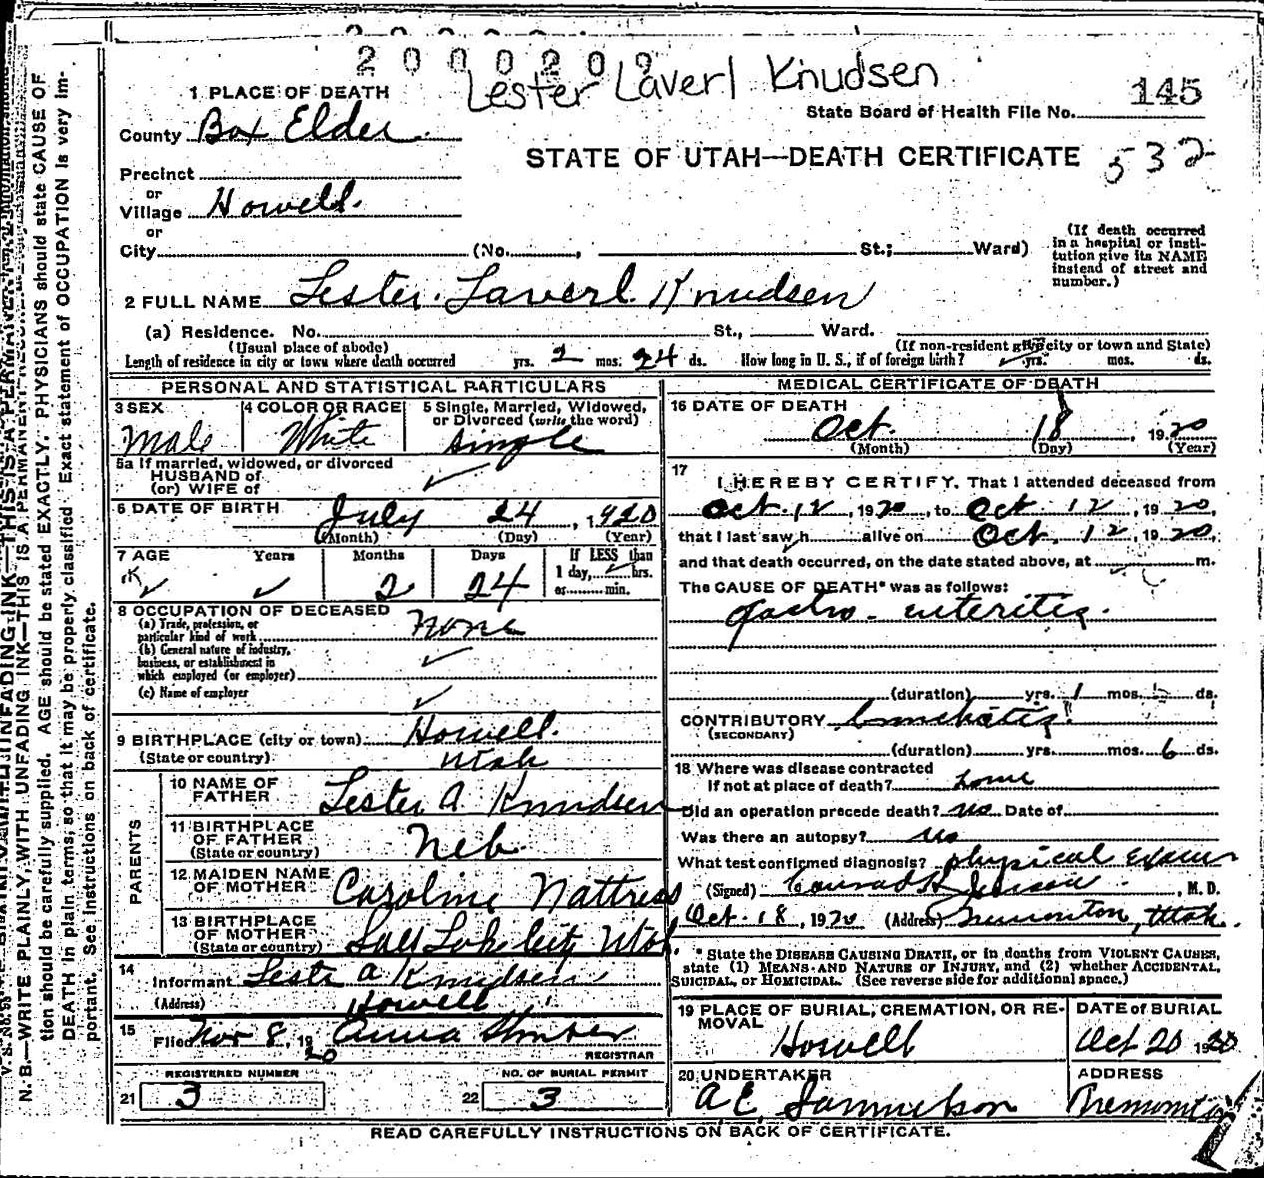 2000209
Lester Laverl Knudsen
1 PLACE OF DEATH
State Board of Health File No. 145
County Box Elder
STATE OF UTAH—DEATH CERTIFICATE 532
Precinct
or
Village Howell.
or
City (No. , St.; Ward)
(If death occurred
in a hospital or insti-
tution give its NAME
instead of street and
number.)
2 FULL NAME Lester Laverl Knudsen
(a) Residence. No. St., Ward.
(Usual place of abode) (If non-resident give city or town and State)
Length of residence in city or town where death occurred yrs. 2 mos. 24 ds. How long in U. S., if of foreign birth? yrs. mos. ds.
PERSONAL AND STATISTICAL PARTICULARS
3 SEX
Male
4 COLOR OR RACE
White
5 Single, Married, Widowed,
or Divorced (write the word)
single
5a If married, widowed, or divorced
HUSBAND of
(or) WIFE of
6 DATE OF BIRTH July 24, 1920
(Month) (Day) (Year)
7 AGE Years Months Days If LESS than
1 day, hrs.
or min.
2 24
8 OCCUPATION OF DECEASED
(a) Trade, profession, or
particular kind of work none
(b) General nature of industry,
business, or establishment in
which employed (or employer)
(c) Name of employer
9 BIRTHPLACE (city or town) Howell.
(State or country) Utah
PARENTS
10 NAME OF
FATHER Lester A. Knudsen
11 BIRTHPLACE
OF FATHER
(State or country) Neb.
12 MAIDEN NAME
OF MOTHER Caroline Nattress
13 BIRTHPLACE
OF MOTHER
(State or country) Salt Lake City Utah
14
Informant Lester A Knudsen
(Address) Howell
15
Filed Nov 8, 1920 Anna
REGISTRAR
REGISTERED NUMBER
21 3
NO. OF BURIAL PERMIT
22 3
MEDICAL CERTIFICATE OF DEATH
16 DATE OF DEATH
Oct. 18, 1920
(Month) (Day) (Year)
17
I HEREBY CERTIFY, That I attended deceased from
Oct. 12, 1920, to Oct. 12, 1920,
that I last saw h alive on Oct. 12, 1920,
and that death occurred, on the date stated above, at m.
The CAUSE OF DEATH* was as follows:
gastro-enteritis.
(duration) yrs. 1 mos. ds.
CONTRIBUTORY
(SECONDARY)
(duration) yrs. mos. 6 ds.
18 Where was disease contracted
if not at place of death? home
Did an operation precede death? no Date of
Was there an autopsy? no
What test confirmed diagnosis? physical exam
(Signed) Conrad H Jenson, M. D.
Oct. 18, 1920 (Address) Tremonton, Utah.
* State the DISEASE CAUSING DEATH, or in deaths from VIOLENT CAUSES,
state (1) MEANS AND NATURE OF INJURY, and (2) whether ACCIDENTAL,
SUICIDAL, or HOMICIDAL. (See reverse side for additional space.)
19 PLACE OF BURIAL, CREMATION, OR RE-
MOVAL
Howell
DATE of BURIAL
Oct 20 1920
20 UNDERTAKER
A C
ADDRESS
Tremonton
READ CAREFULLY INSTRUCTIONS ON BACK OF CERTIFICATE.
N. B.—WRITE PLAINLY, WITH UNFADING INK—THIS IS A PERMANENT
tion should be carefully supplied. AGE should be stated EXACTLY. PHYSICIANS should state CAUSE OF
DEATH in plain terms, so that it may be properly classified. Exact statement of OCCUPATION is very im-
portant. See instructions on back of certificate.